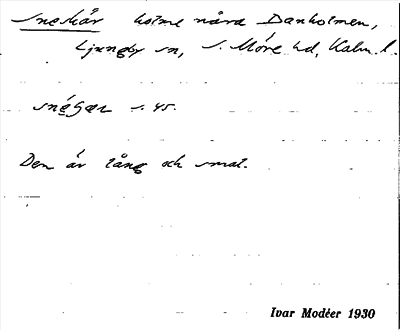 Sneskär holme nära Danholmen,
Ljungby sn, S. Möre hd, Kalm. l.
s. 45.
Den är lång och smal.
Ivar Modéer 1930